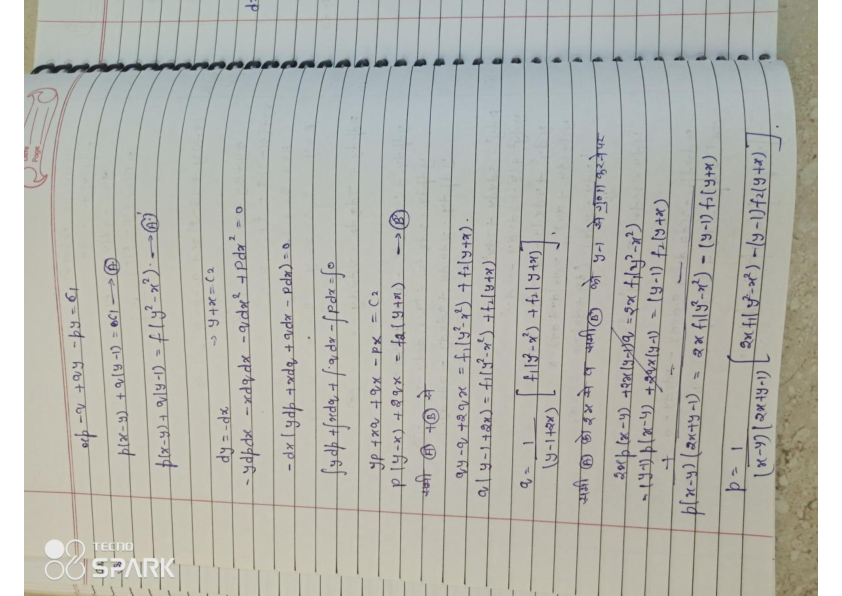 xp - q + qy - py = c1
p(x-y) + q(y-1) = c1 → (A)
p(x-y) + q(y-1) = f(y²-x²). → (A')
dy = -dx → y+x = c2
- ydpdx - xdqdx - qdx² + pdx² = 0
- dx(ydp + xdq + qdx - pdx) = 0
∫ydp + ∫xdq + ∫qdx - ∫pdx = ∫0
yp + xq + qx - px = c2
p(y-x) + 2qx = f2(y+x) → (B')
समी (A) + (B) से
qy - q + 2qx = f1(y²-x²) + f2(y+x).
q(y-1+2x) = f1(y²-x²) + f2(y+x)
q = 1/(y-1+2x) [f1(y²-x²) + f2(y+x)].
समी (A) को 2x से व समी (B') को y-1 से गुणा करने पर
2xp(x-y) + 2x(y-1)q = 2x f1(y²-x²)
-(y-1)p(x-y) + 2qx(y-1) = (y-1) f2(y+x)
+ - -
p(x-y)(2x+y-1) = 2x f1(y²-x²) - (y-1) f2(y+x)
p = 1/(x-y)(2x+y-1) [2x f1(y²-x²) - (y-1) f2(y+x)].
TECNO
SPARK